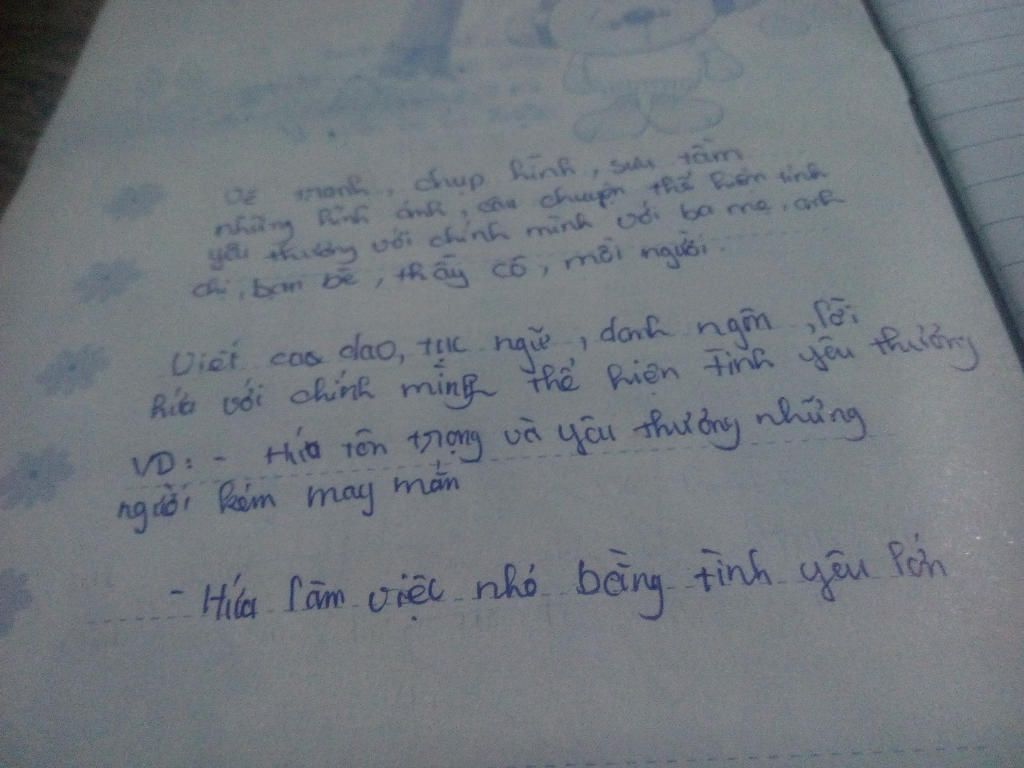 vẽ tranh, chụp hình, sưu tầm
những hình ảnh, câu chuyện thể hiện tình
yêu thương với chính mình với ba mẹ, anh
chị, bạn bè, thầy cô, mọi người.
Viết cao dao, tục ngữ, danh ngôn, lời
hứa với chính mình thể hiện tình yêu thương
VD: - Hứa tôn trọng và yêu thương những
người kém may mắn
- Hứa làm việc nhỏ bằng tình yêu lớn